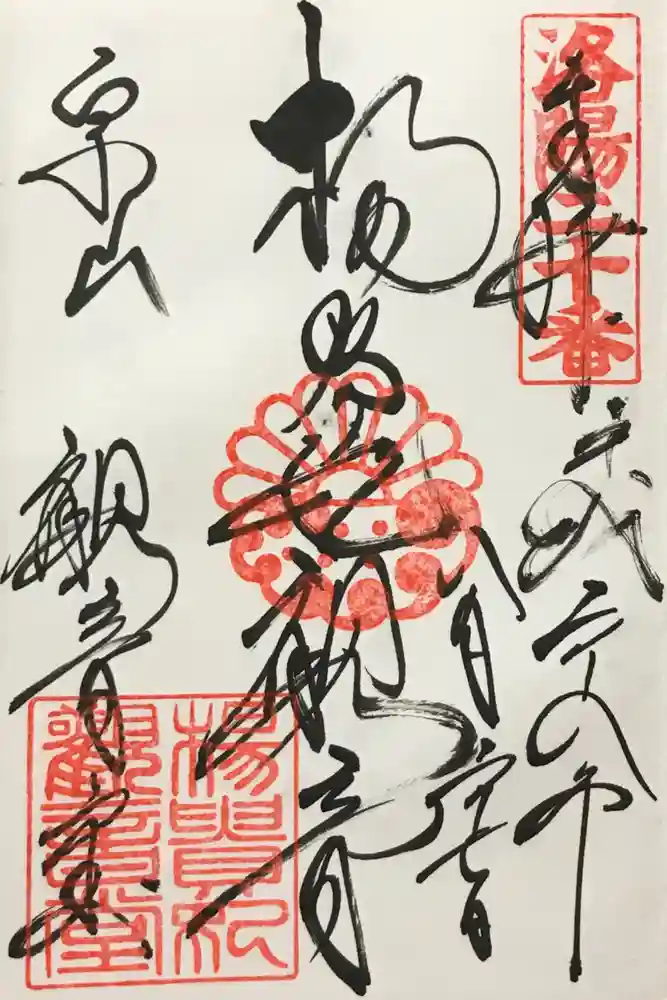 洛陽二十番
奉拝
平成二十八年
八月廿七日
楊貴妃観音
泉山
観音
楊貴妃
観音堂